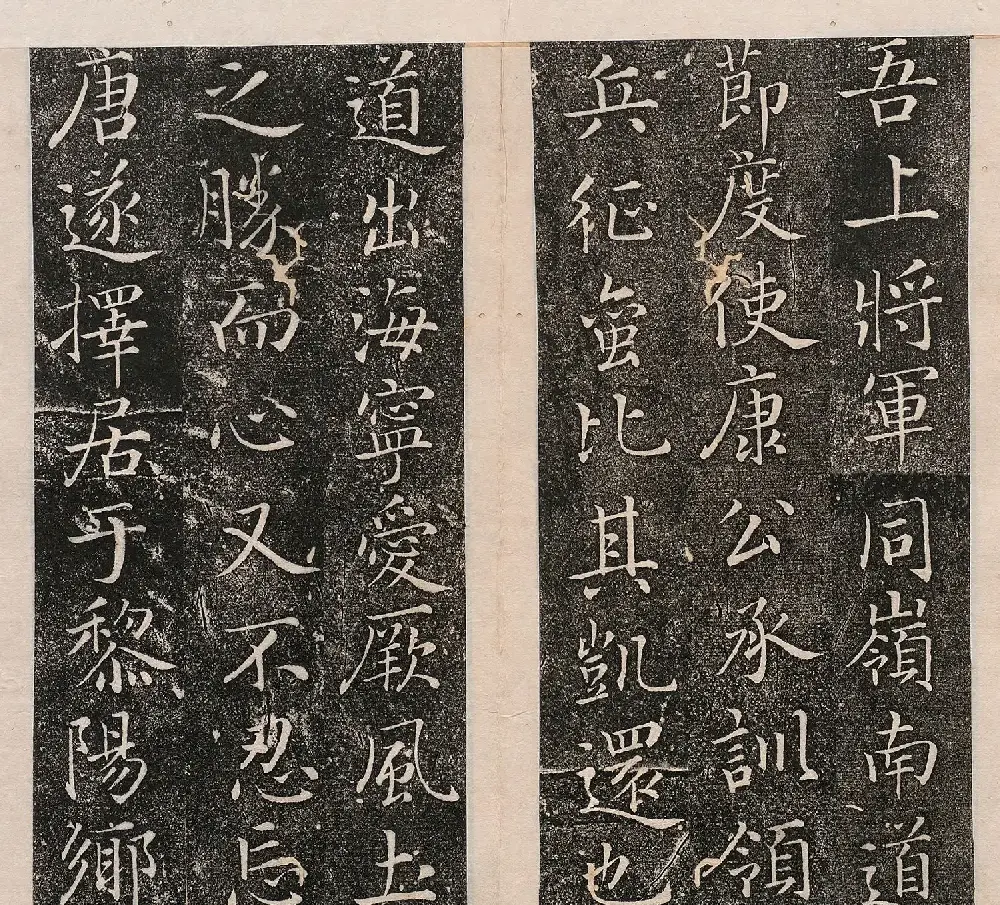 吾上將軍同嶺南道
節度使康公承訓領
兵征蛮比其凱還也
道出海寧愛厥風土
之勝而心又不忍忘
唐遂擇居于黎陽鄉